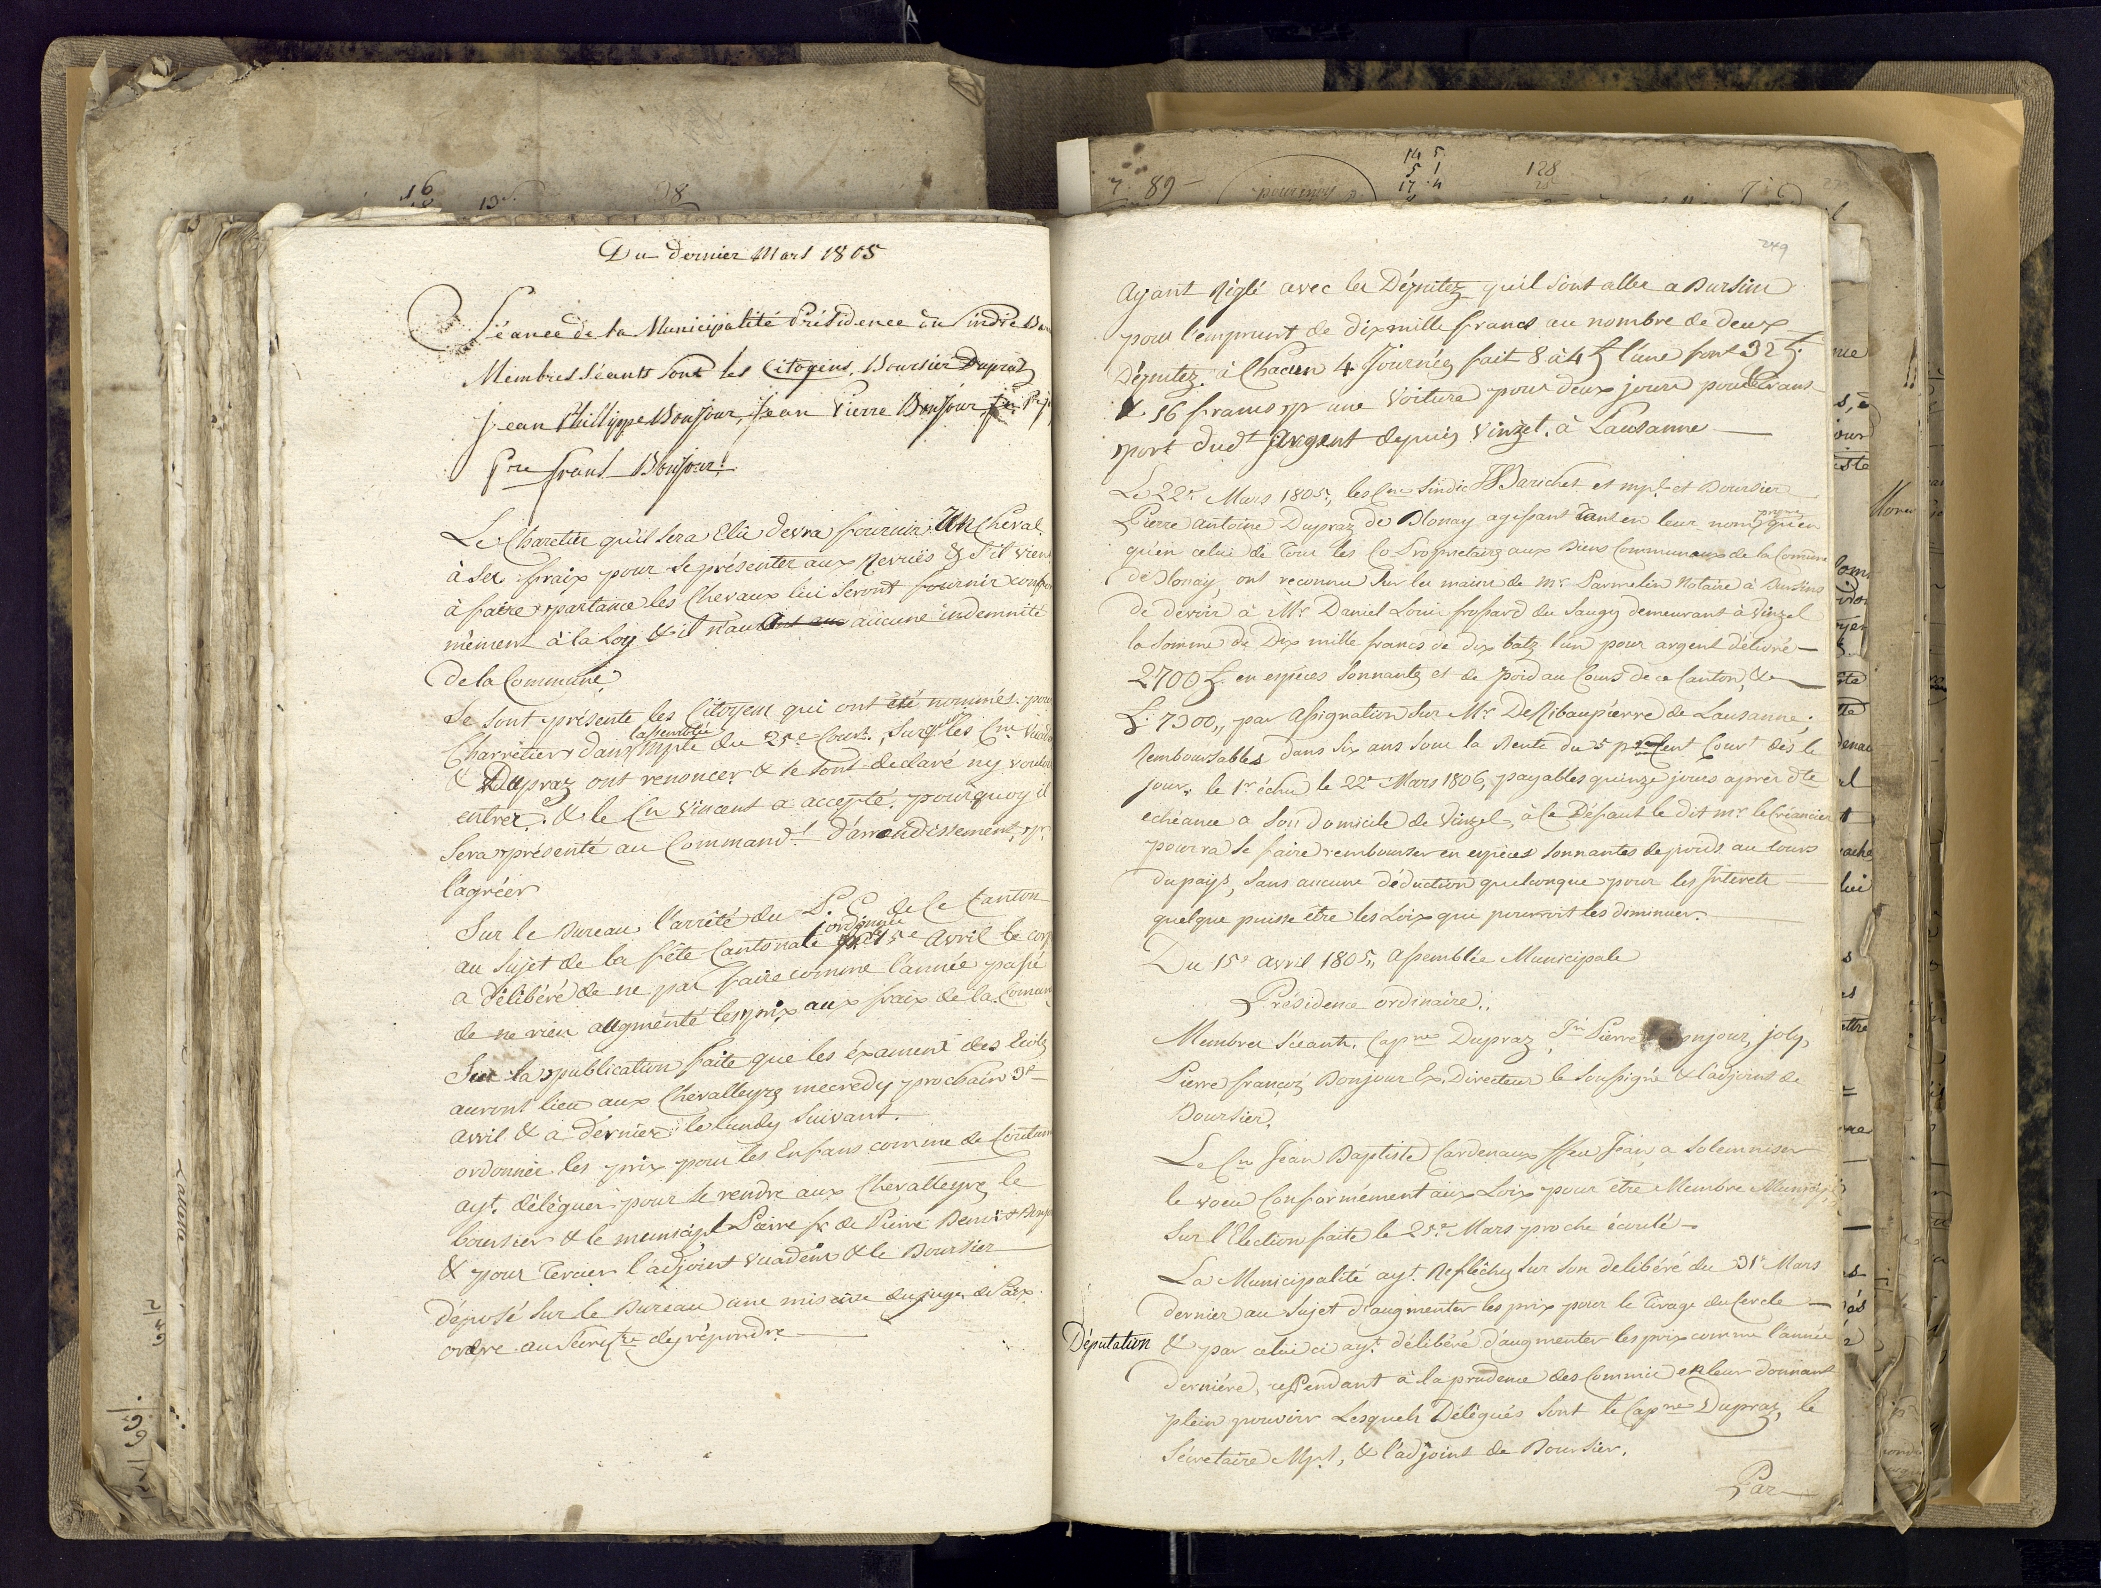 Du dernier Mars 1805
Séance de la Municipalité Présidence du Sindic
Membres Séants sont les Citoyens, Boursier Dupraz
Jean Phillippe Bonjour, Jean Pierre Bonjour,
Pre frans Bonjour.
Le Charetier qu'il sera Elu devra fournir Un Cheval
à ses fraix pour se présenter aux Revuës & s'il vien
à faire partance les Chevaux lui seront fournir confor
mément à la Loy & il n'au aucune indemnité
de la Commune
Se sont présenté les Citoyens qui ont été nommés pour
Charrétier dans l'assemblée du 25e Cour.t, Sur quoi les Cns
& Dupraz ont renoncer & se sont declaré ny vouloi
entrer. & le Cn Vincent a accepté. pourquoy il
Sera présenté au Command.t d'arrondissement, pr.
l'agréer
Sur le Bureau l'arrêté du P. C. de ce Canton
au sujet de la fête Cantonale ordonnée 15e Avril le corp
a délibéré de ne pas faire comme l'année passé
de ne rien augmenté les prix aux fraix de la Comun
Sur la publication faite que les éxamens des Ecôles
auront lieu aux Chevalleyrs mecredy prochain 3e
avril & à dernier le lundy suivant.
ordonnée les prix pour les Enfans comme de Coutum
ayt. déléguer pour se rendre aux Chevalleyre le
boursier & le municipl Pierre fs de Pierre Benoit Bonjo
& pour Tercier l'adjoint Vuadens & le Boursier
déposé sur le Bureau une missive du juge de Paix.
ordre au Secrétre d'y répondre
249
Ayant Réglé avec les Députez qu'il sont aller a Bursins
pour l'emprunt de dix mille francs au nombre de deux
Députez. à Chacun 4 Journées fait 8 à 4 £ l'une font 32 £.
& 16 francs pr une Voiture pour deux jours pour le trans
port dudt argent depuis Vinzel. à Lausanne
Le 22e Mars 1805, les Cns Sindic Barichet et mpl. et Boursier
Pierre Antoine Dupraz de Blonay agissant Tant en leur nom propre qu'en
qu'en celui de Tous les Co Propriétairs aux Biens Communaux de la Comune
de Blonay, ont reconnu sur les mains de Mr Parmelin Notaire à Bursins
de devoir à Mr Daniel Louis frossard du Saugy demeurant à Vinzel
la Somme de Dix mille francs de dix batz l'un pour argent délivré
2700 £. en espèces sonnantes et de Poid au Cours de ce Canton, &
£. 7300,, par Assignation sur Mr DeRibaupierre de Lausanne,
Remboursables dans six ans sous la Rente du 5 pr Cent Cour.t dès le
jour, le 1r échu le 22e Mars 1806, payables quinze jours après dte
echéance a son domicile de Vinzel, à ce Défaut le dit mr le Créancier
pourra se faire rembourser en espèces sonnantes de poids au cours
du pays, sans aucune déduction quelconque pour les Interets
quelque puisse être les Loix qui pourroit les diminuer.
Du 15e avril 1805,, assemblée Municipale
Présidence ordinaire.
Membres Séants. Capne Dupraz, Jn Pierre Bonjour, joly,
Pierre françois Bonjour Ex. Directeur le Soussigné & l'adjoint de
Boursier.
Le Cn Jean Baptiste Cardenaux ffeu Jean, a solemniser
le voeu Conformément aux Loix pour être Membre Municipl
Sur l'Election faite le 25e Mars proche écoulé
La Municipalité ayt. Reflêchy sur son delibéré du 31e Mars
dernier au sujet d'augmenter les prix pour le Tirage du Cercle
Députation
& par celui ci ayt. délibéré d'augmenter les prix comme l'année
dernière, cependant à la prudence des Commis en leur donnant
plein pouvoir Lesquels Délégués sont le Capne Dupraz, le
Sécretaire Mpl, & l'adjoint de Boursier.
Par